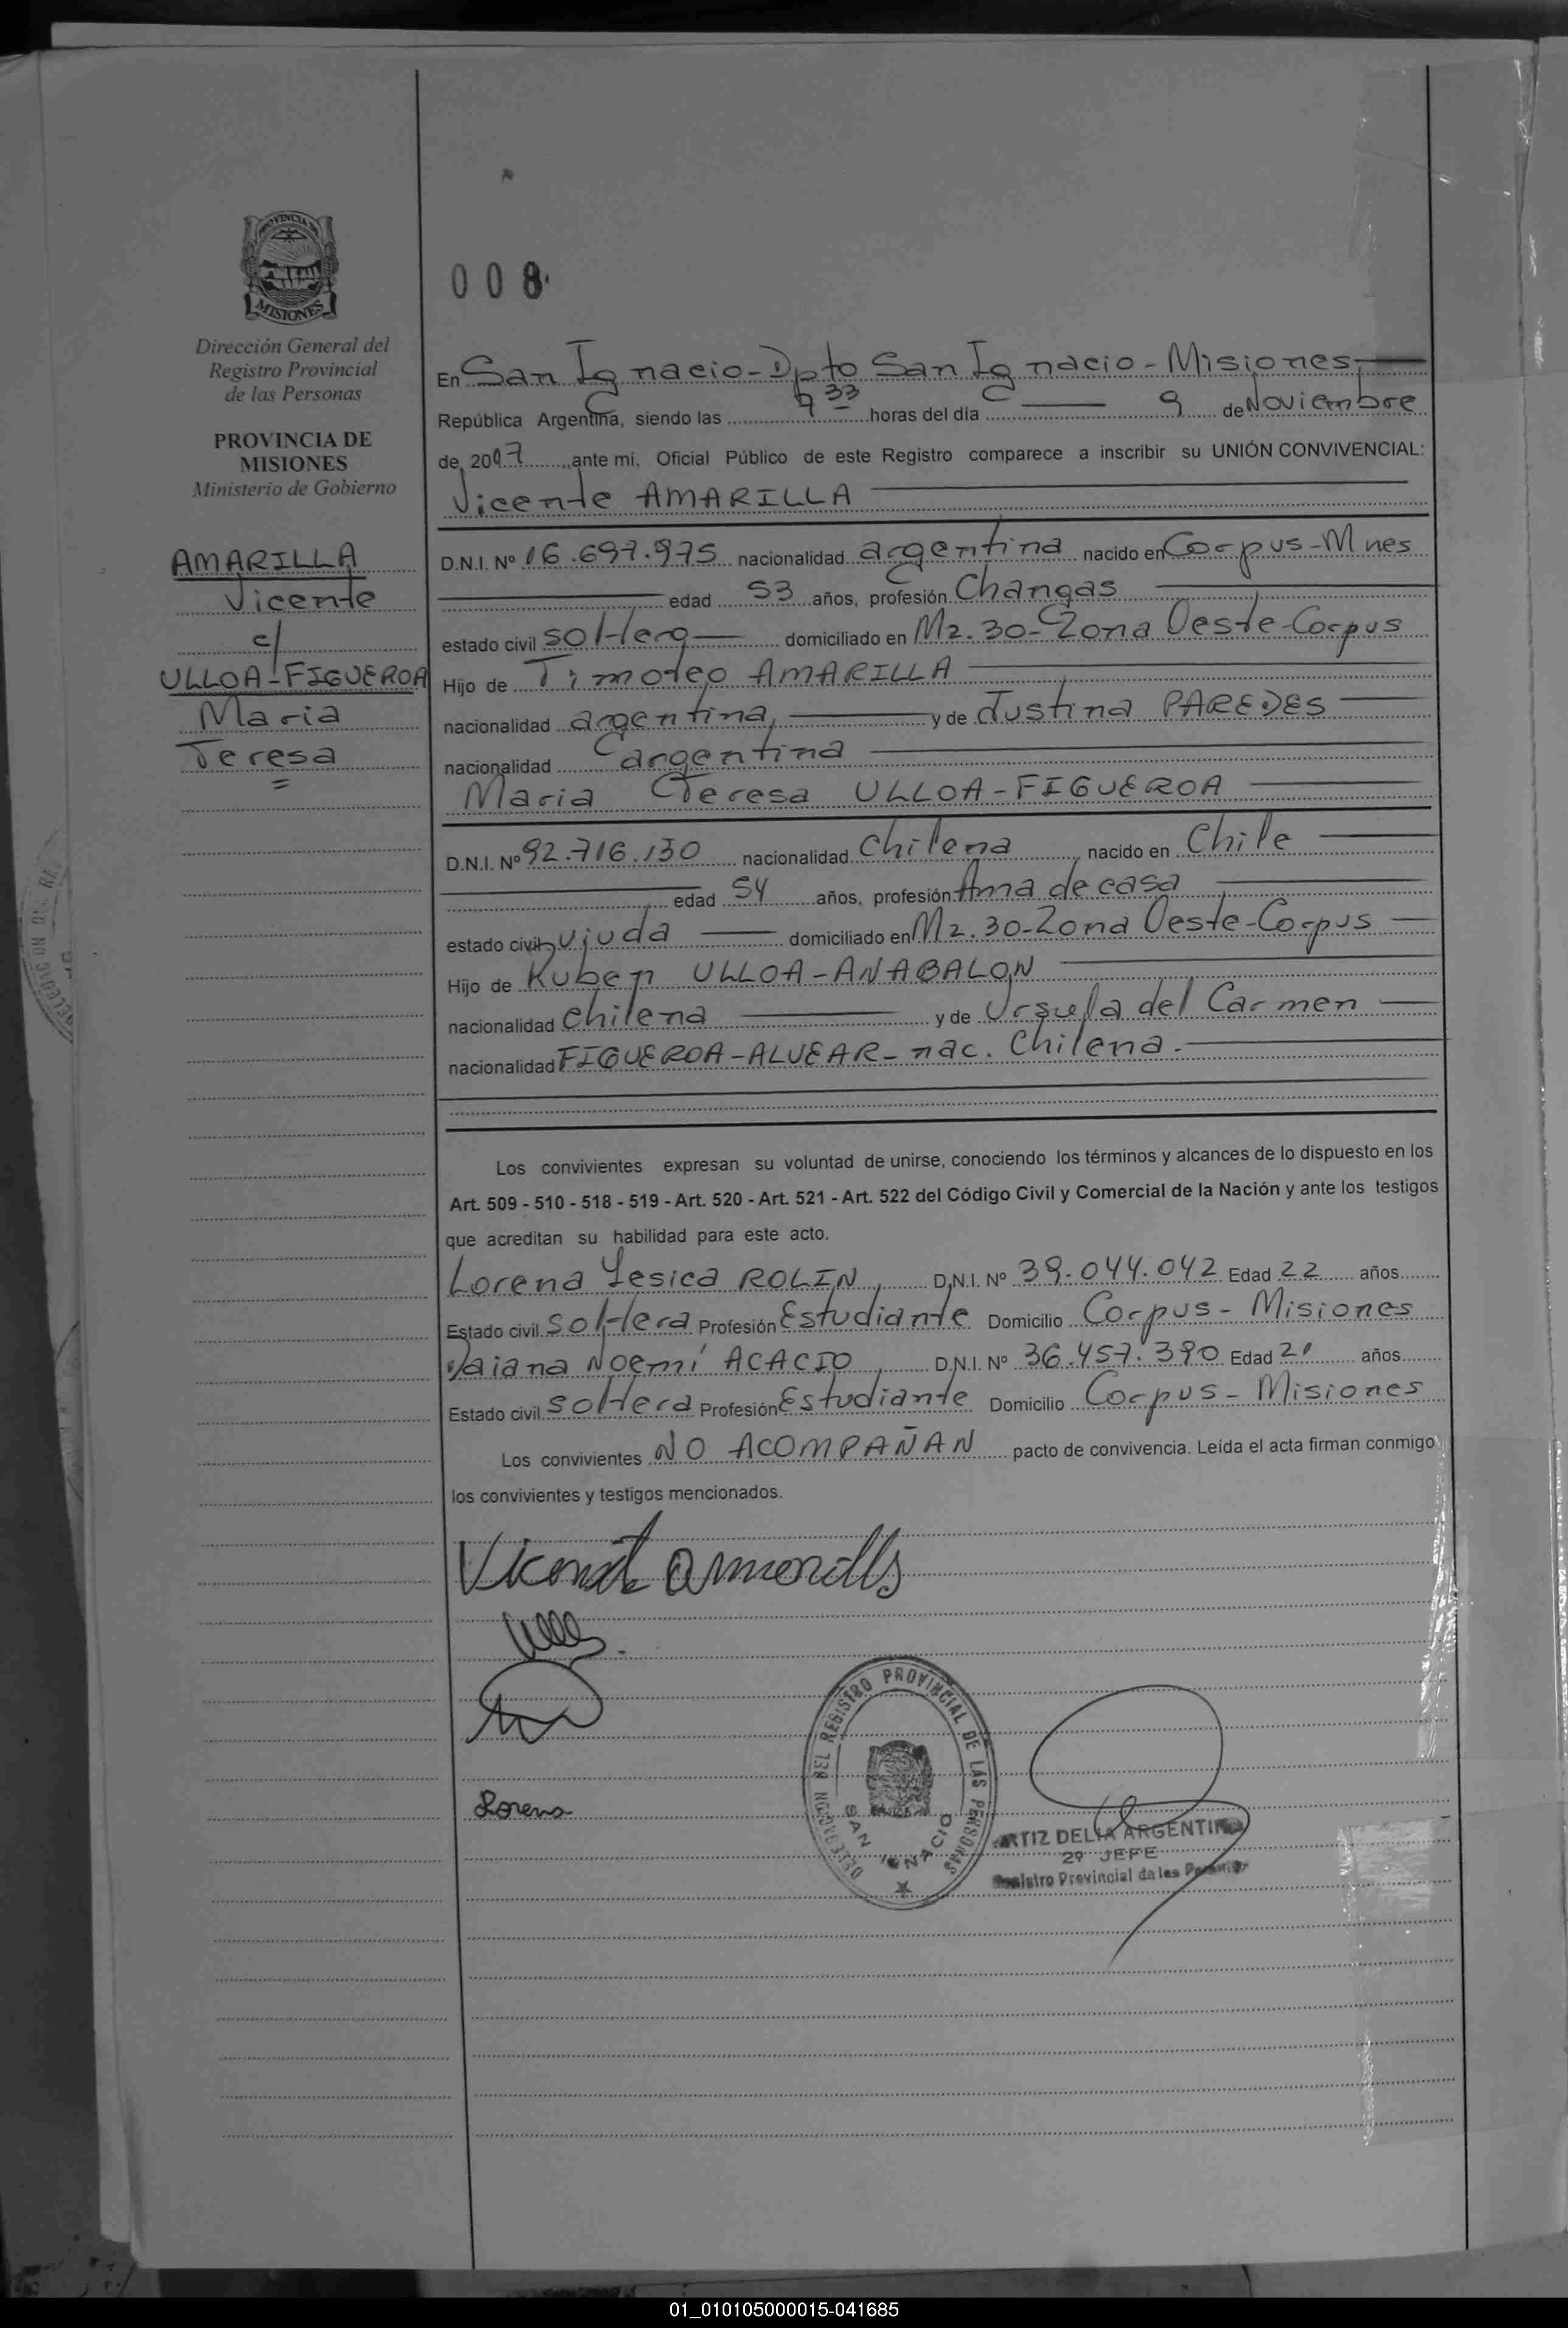 008
PROVINCIA DE
MISIONES
Dirección General del
Registro Provincial
de las Personas
PROVINCIA DE
MISIONES
Ministerio de Gobierno
AMARILLA
Vicente
c/
ULLOA-FIGUEROA
Maria
Teresa
En San Ignacio-Dpto San Ignacio-Misiones
República Argentina, siendo las 9 33 horas del día 9 de Noviembre
de 2007 ante mí, Oficial Público de este Registro comparece a inscribir su UNIÓN CONVIVENCIAL:
Vicente AMARILLA
D.N.I. Nº 16.697.975 nacionalidad argentina nacido en Corpus-Mnes
edad 53 años, profesión Changas
estado civil soltero domiciliado en Mz.30-Zona Oeste-Corpus
Hijo de Timoteo AMARILLA
nacionalidad argentina, y de Justina PAREDES
nacionalidad argentina
Maria Teresa ULLOA-FIGUEROA
D.N.I. Nº 92.716.130 nacionalidad Chilena nacido en Chile
edad 54 años, profesión Ama de casa
estado civil viuda domiciliado en Mz.30-Zona Oeste-Corpus
Hijo de Ruben ULLOA-ANABALON
nacionalidad chilena y de Ursula del Carmen
nacionalidad FIGUEROA-ALVEAR- nac. Chilena.-
Los convivientes expresan su voluntad de unirse, conociendo los términos y alcances de lo dispuesto en los
Art. 509 - 510 - 518 - 519 - Art. 520 - Art. 521 - Art. 522 del Código Civil y Comercial de la Nación y ante los testigos
que acreditan su habilidad para este acto.
Lorena Yesica ROLIN, D.N.I. Nº 39.044.042 Edad 22 años
Estado civil soltera Profesión Estudiante Domicilio Corpus-Misiones
Daiana Noemí ACACIO, D.N.I. Nº 36.457.390 Edad 21 años
Estado civil soltera Profesión Estudiante Domicilio Corpus-Misiones
Los convivientes NO ACOMPAÑAN pacto de convivencia. Leída el acta firman conmigo
los convivientes y testigos mencionados.
Lorena
DELEGACION DEL REGISTRO PROVINCIAL DE LAS PERSONAS
SAN IGNACIO
DELIA ARGENTINA
2º JEFE
Registro Provincial de las Personas
01_010105000015-041685